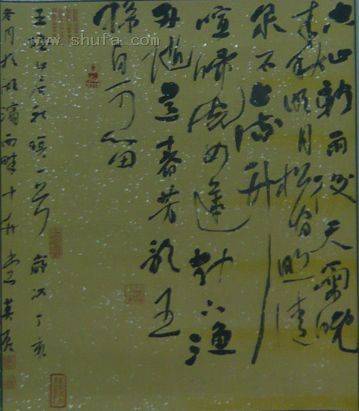 空山新雨後天氣晚
來秋明月松間照清
泉石上流竹
喧歸浣女蓮動下漁
舟隨意春芳歇王
孫自可留
王維山居秋暝一首 歲次丁亥
冬月於
www.shufa.com